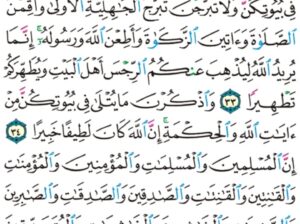 فِي بُيُوتِكُنَّ وَلَا تَبَرَّجْنَ تَبَرُّجَ ٱلْجَٰهِلِيَّةِ ٱلْأُولَىٰ وَأَقِمْنَ
ٱلصَّلَوٰةَ وَءَاتِينَ ٱلزَّكَوٰةَ وَأَطِعْنَ ٱللَّهَ وَرَسُولَهُۥٓ ۚ إِنَّمَا
يُرِيدُ ٱللَّهُ لِيُذْهِبَ عَنكُمُ ٱلرِّجْسَ أَهْلَ ٱلْبَيْتِ وَيُطَهِّرَكُمْ
تَطْهِيرًا ٣٣ وَٱذْكُرْنَ مَا يُتْلَىٰ فِي بُيُوتِكُنَّ مِنْ
ءَايَٰتِ ٱللَّهِ وَٱلْحِكْمَةِ ۚ إِنَّ ٱللَّهَ كَانَ لَطِيفًا خَبِيرًا ٣٤
إِنَّ ٱلْمُسْلِمِينَ وَٱلْمُسْلِمَٰتِ وَٱلْمُؤْمِنِينَ وَٱلْمُؤْمِنَٰتِ
وَٱلْقَٰنِتِينَ وَٱلْقَٰنِتَٰتِ وَٱلصَّٰدِقِينَ وَٱلصَّٰدِقَٰتِ وَٱلصَّٰبِرِينَ